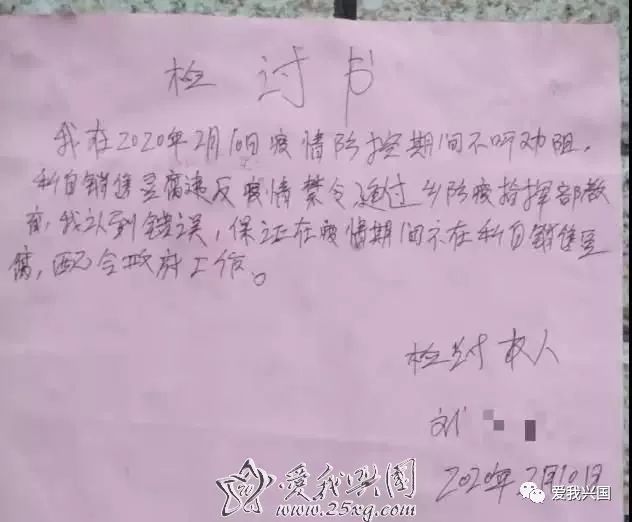 检讨书
我在2020年2月10日疫情防控期间不听劝阻，
私自销售豆腐违反疫情禁令通过乡防疫指挥部教
育，我认到错误，保证在疫情期间不在私自销售豆
腐，配合政府工作。
检对权人
刘
2020年2月10日
爱我兴国
www.25xg.com
爱我兴国